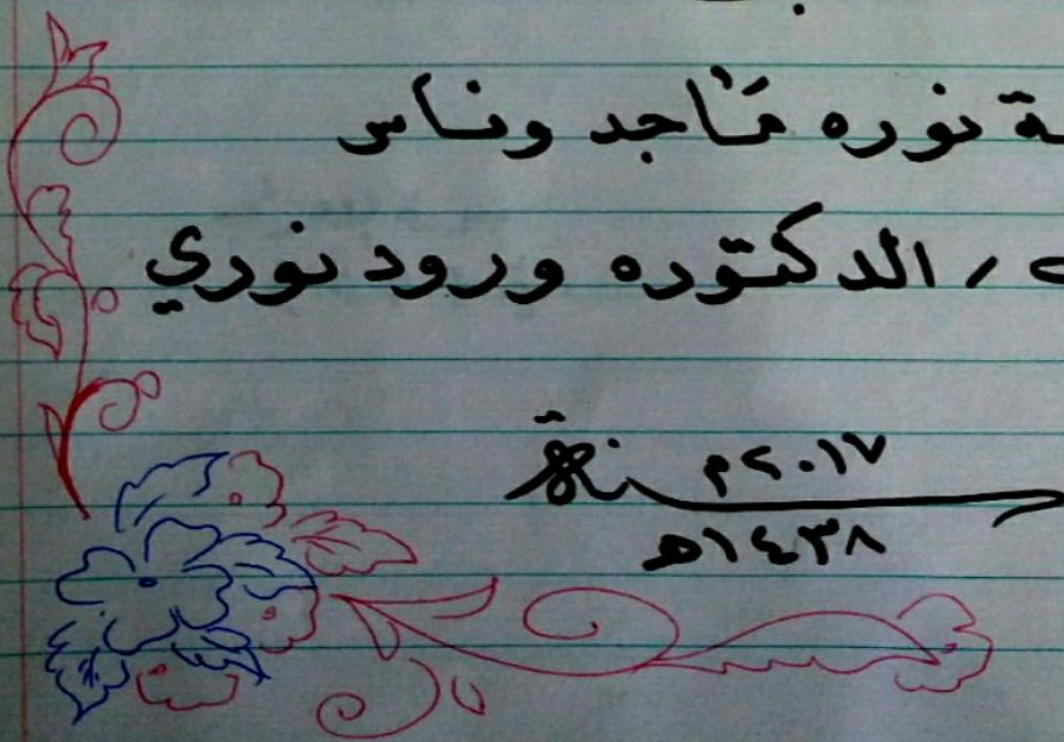 ة نوره ماجد وناس
/ الدكتوره ورود نوري
سنة ٢٠١٧م
١٤٣٨هـ